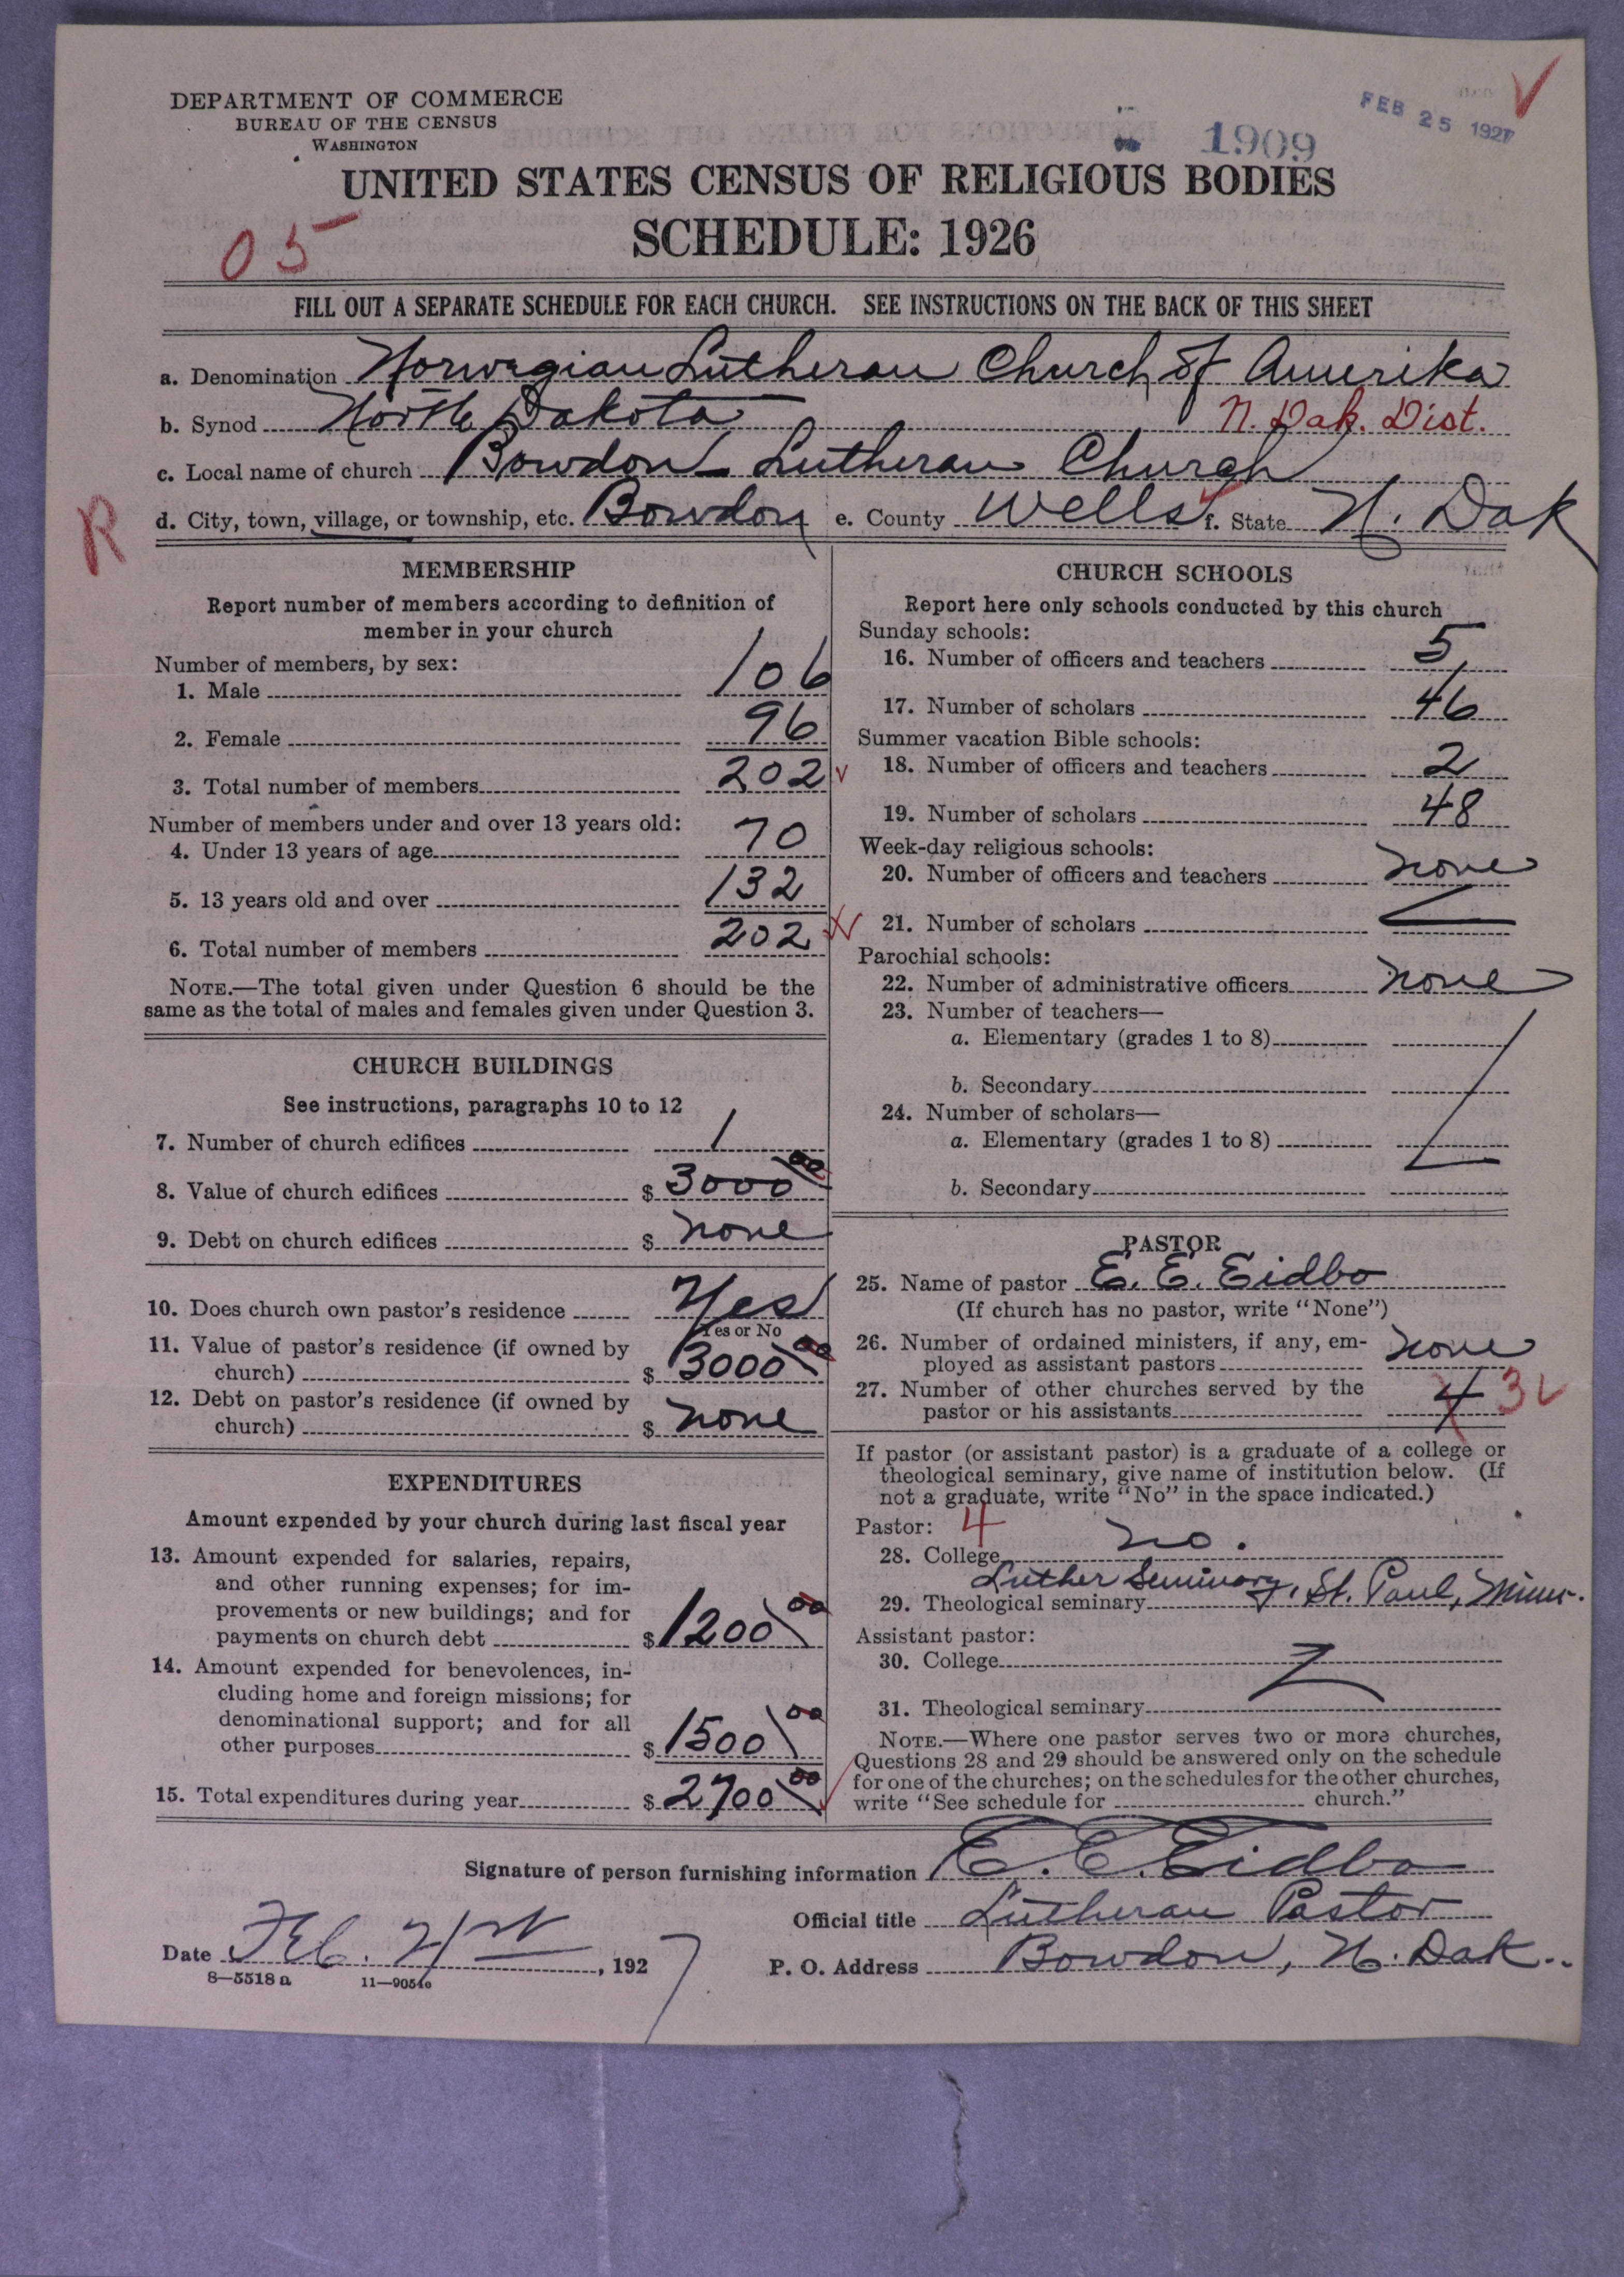 DEPARTMENT OF COMMERCE
BUREAU OF THE CENSUS
WASHINGTON
1909
FEB 25 1927
UNITED STATES CENSUS OF RELIGIOUS BODIES
SCHEDULE: 1926
05
FILL OUT A SEPARATE SCHEDULE FOR EACH CHURCH. SEE INSTRUCTIONS ON THE BACK OF THIS SHEET
a. Denomination Norwegian Lutheran Church of Amerika
b. Synod North Dakota N. Dak. Dist.
c. Local name of church Bowdon Lutheran Church
R
d. City, town, village, or township, etc. Bowdon e. County Wells f. State N. Dak
MEMBERSHIP
Report number of members according to definition of
member in your church
Number of members, by sex:
1. Male 106
2. Female 96
3. Total number of members 202
Number of members under and over 13 years old:
4. Under 13 years of age 70
5. 13 years old and over 132
6. Total number of members 202
NOTE.—The total given under Question 6 should be the
same as the total of males and females given under Question 3.
CHURCH BUILDINGS
See instructions, paragraphs 10 to 12
7. Number of church edifices 1
8. Value of church edifices $ 3000 00
9. Debt on church edifices $ none
10. Does church own pastor's residence Yes
Yes or No
11. Value of pastor's residence (if owned by
church) $ 3000 00
12. Debt on pastor's residence (if owned by
church) $ none
EXPENDITURES
Amount expended by your church during last fiscal year
13. Amount expended for salaries, repairs,
and other running expenses; for im-
provements or new buildings; and for
payments on church debt $ 1200 00
14. Amount expended for benevolences, in-
cluding home and foreign missions; for
denominational support; and for all
other purposes $ 1500 00
15. Total expenditures during year $ 2700 00
CHURCH SCHOOLS
Report here only schools conducted by this church
Sunday schools:
16. Number of officers and teachers 5
17. Number of scholars 46
Summer vacation Bible schools:
18. Number of officers and teachers 2
19. Number of scholars 48
Week-day religious schools:
20. Number of officers and teachers none
21. Number of scholars
Parochial schools:
22. Number of administrative officers none
23. Number of teachers—
a. Elementary (grades 1 to 8)
b. Secondary
24. Number of scholars—
a. Elementary (grades 1 to 8)
b. Secondary
PASTOR
25. Name of pastor E. E. Eidbo
(If church has no pastor, write "None")
26. Number of ordained ministers, if any, em-
ployed as assistant pastors none
27. Number of other churches served by the
pastor or his assistants 4 3
If pastor (or assistant pastor) is a graduate of a college or
theological seminary, give name of institution below. (If
not a graduate, write "No" in the space indicated.)
Pastor: 4
28. College no.
29. Theological seminary Luther Seminary, St. Paul, Minn.
Assistant pastor:
30. College
31. Theological seminary
NOTE.—Where one pastor serves two or more churches,
Questions 28 and 29 should be answered only on the schedule
for one of the churches; on the schedules for the other churches,
write "See schedule for church."
Signature of person furnishing information E. E. Eidbo
Official title Lutheran Pastor
Date Feb. 21st, 1927
P. O. Address Bowdon, N. Dak.
8—5518 a 11—9054o